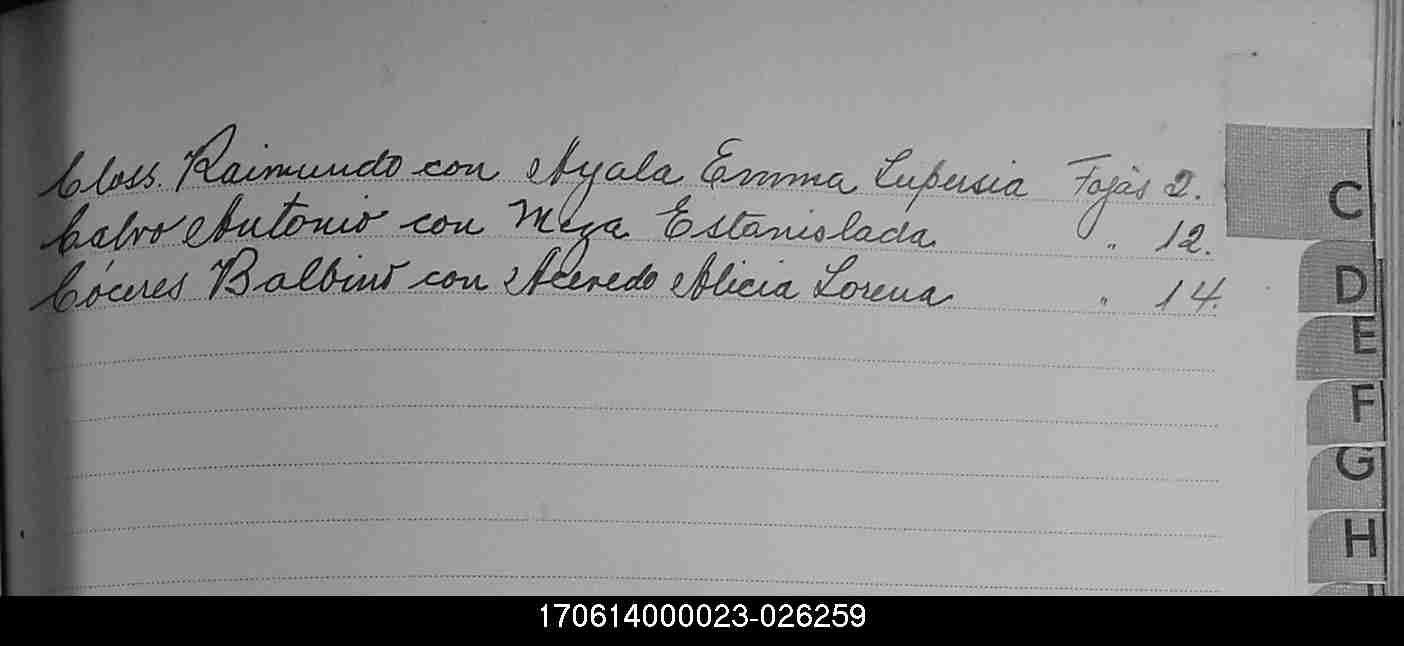 Closs. Raimundo con Ayala Emma Lupersia Fojas 2.
Calvo Antonio con Meza Estanislada " 12.
Cáceres Balbino con Acevedo Alicia Lorena " 14.
C
D
E
F
G
H
170614000023-026259